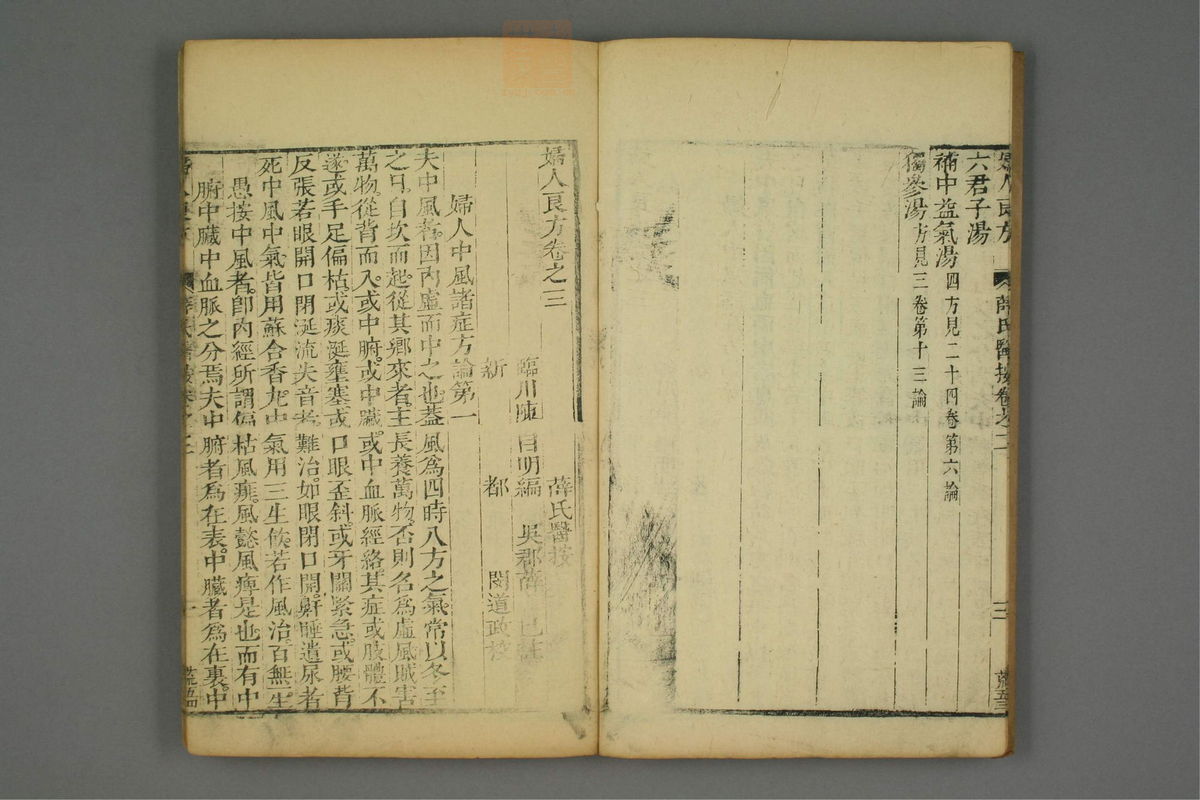 婦人良方
薛氏醫按卷之二
三
六君子湯
補中益氣湯四方見二十四卷第六論
獨參湯方見三卷第十三論
婦人良方卷之三
薛氏醫按
臨川陳 自明編 吳郡薛 已註
新 都 閔道政校
婦人中風諸症方論第一
夫中風者因內虛而中之也蓋風爲四時八方之氣常以冬至
之日自坎而起從其鄉來者主長養萬物否則名爲虛風賊害
萬物從背而入或中腑或中臟或中血脈經絡其症或肢體不
遂或手足偏枯或痰涎壅塞或口眼歪斜或牙關緊急或腰背
反張若眼開口閉涎流失音者難治如眼閉口開鼾睡遺尿者
死中風中氣皆用蘇合香丸中氣用三生飲若作風治百無一生
愚按中風者卽內經所謂偏枯風痱風懿風痺是也而有中
腑中臟中血脈之分焉夫中腑者爲在表中臟者爲在裏中
薛氏醫按卷之三
一